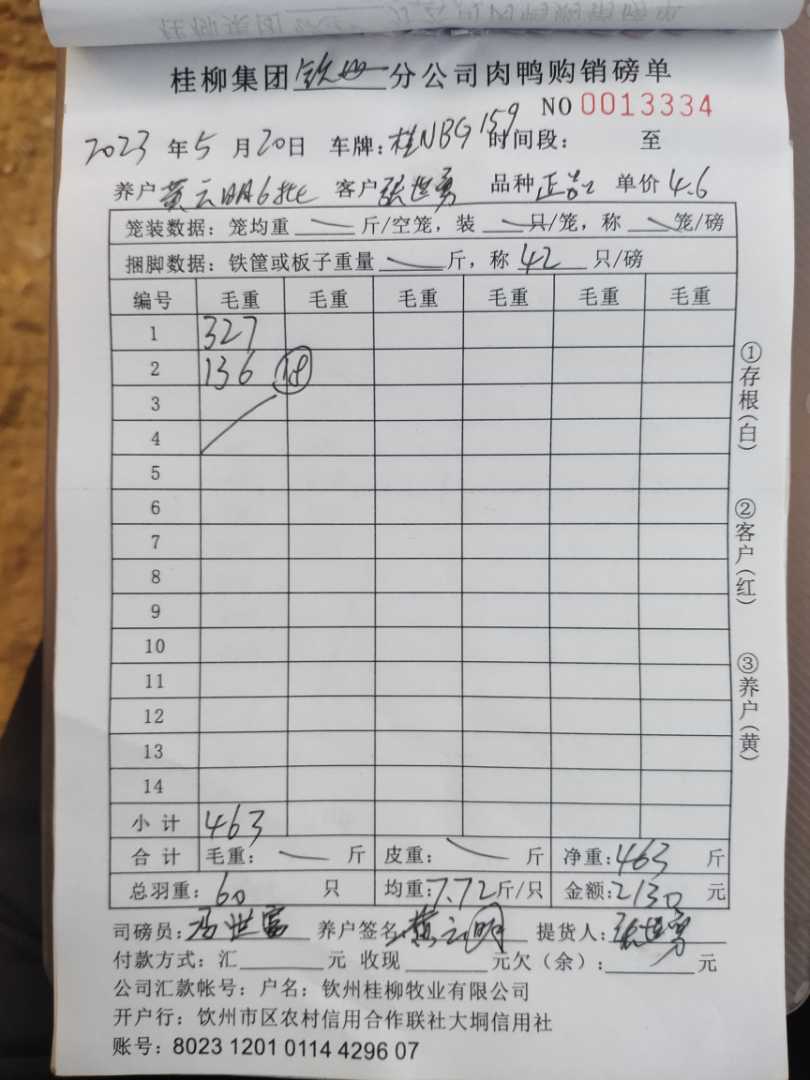 桂柳集团钦州分公司肉鸭购销磅单
NO 0013334
2023年5月20日 车牌:桂NBG159 时间段: 至
养户黄云明6批 客户张世勇 品种正品 单价4.6
笼装数据:笼均重 斤/空笼,装 只/笼,称 笼/磅
捆脚数据:铁筐或板子重量 斤,称42只/磅
编号 毛重 毛重 毛重 毛重 毛重 毛重
1 327
2 136 18
3
4
5
6
7
8
9
10
11
12
13
14
小计 463
合计 毛重: 斤 皮重: 斤 净重:463斤
总羽重:60只 均重:7.72斤/只 金额:2130元
司磅员:冯世富 养户签名黄云明 提货人:张世勇
付款方式:汇 元 收现 元欠(余): 元
公司汇款帐号:户名:钦州桂柳牧业有限公司
开户行:饮州市区农村信用合作联社大垌信用社
账号:8023 1201 0114 4296 07
①存根(白)
②客户(红)
③养户(黄)